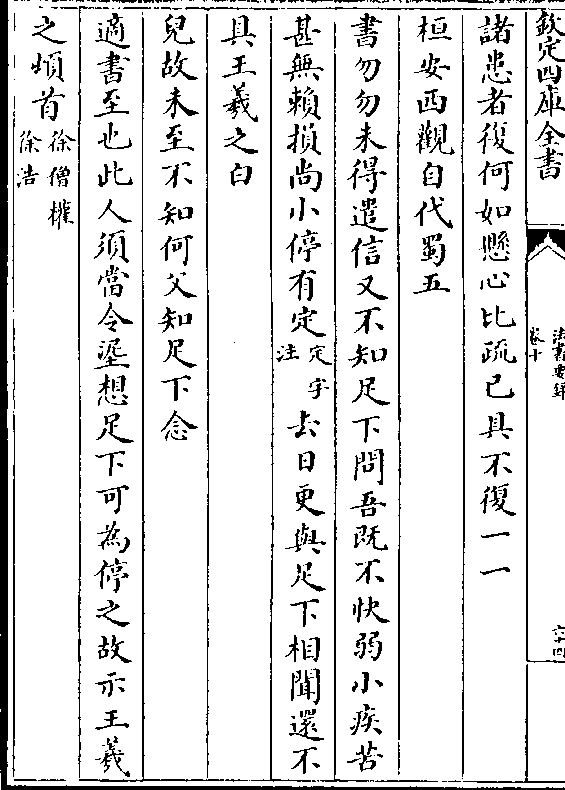 欽定四庫全書
法書要錄
卷十
六十四
諸患者復何如懸心比疏已具不復一一
桓安西觀自代蜀五
書勿勿未得遣信又不知足下問吾既不快弱小疾苦
甚無賴損尚小停有定定字注去日更與足下相聞還不
具王羲之白
兒故未至不知何父知足下念
適書至也此人須當令塗想足下可為停之故示王羲
之頃首徐僧權徐浩